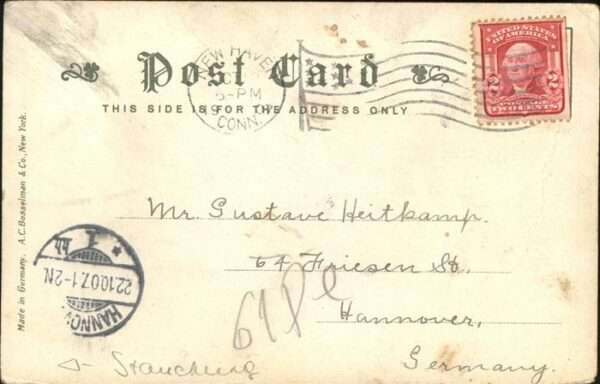 NEW HAVEN
5-PM
CONN.
UNITED STATES
OF AMERICA
2 2
POSTAGE
TWO CENTS
Post Card
THIS SIDE IS FOR THE ADDRESS ONLY
Made in Germany. A.C. Bosselman & Co., New York.
Mr. Gustave Heitkamp.
64 Friesen St.
Hannover,
Germany.
22.10.07.1-2N.